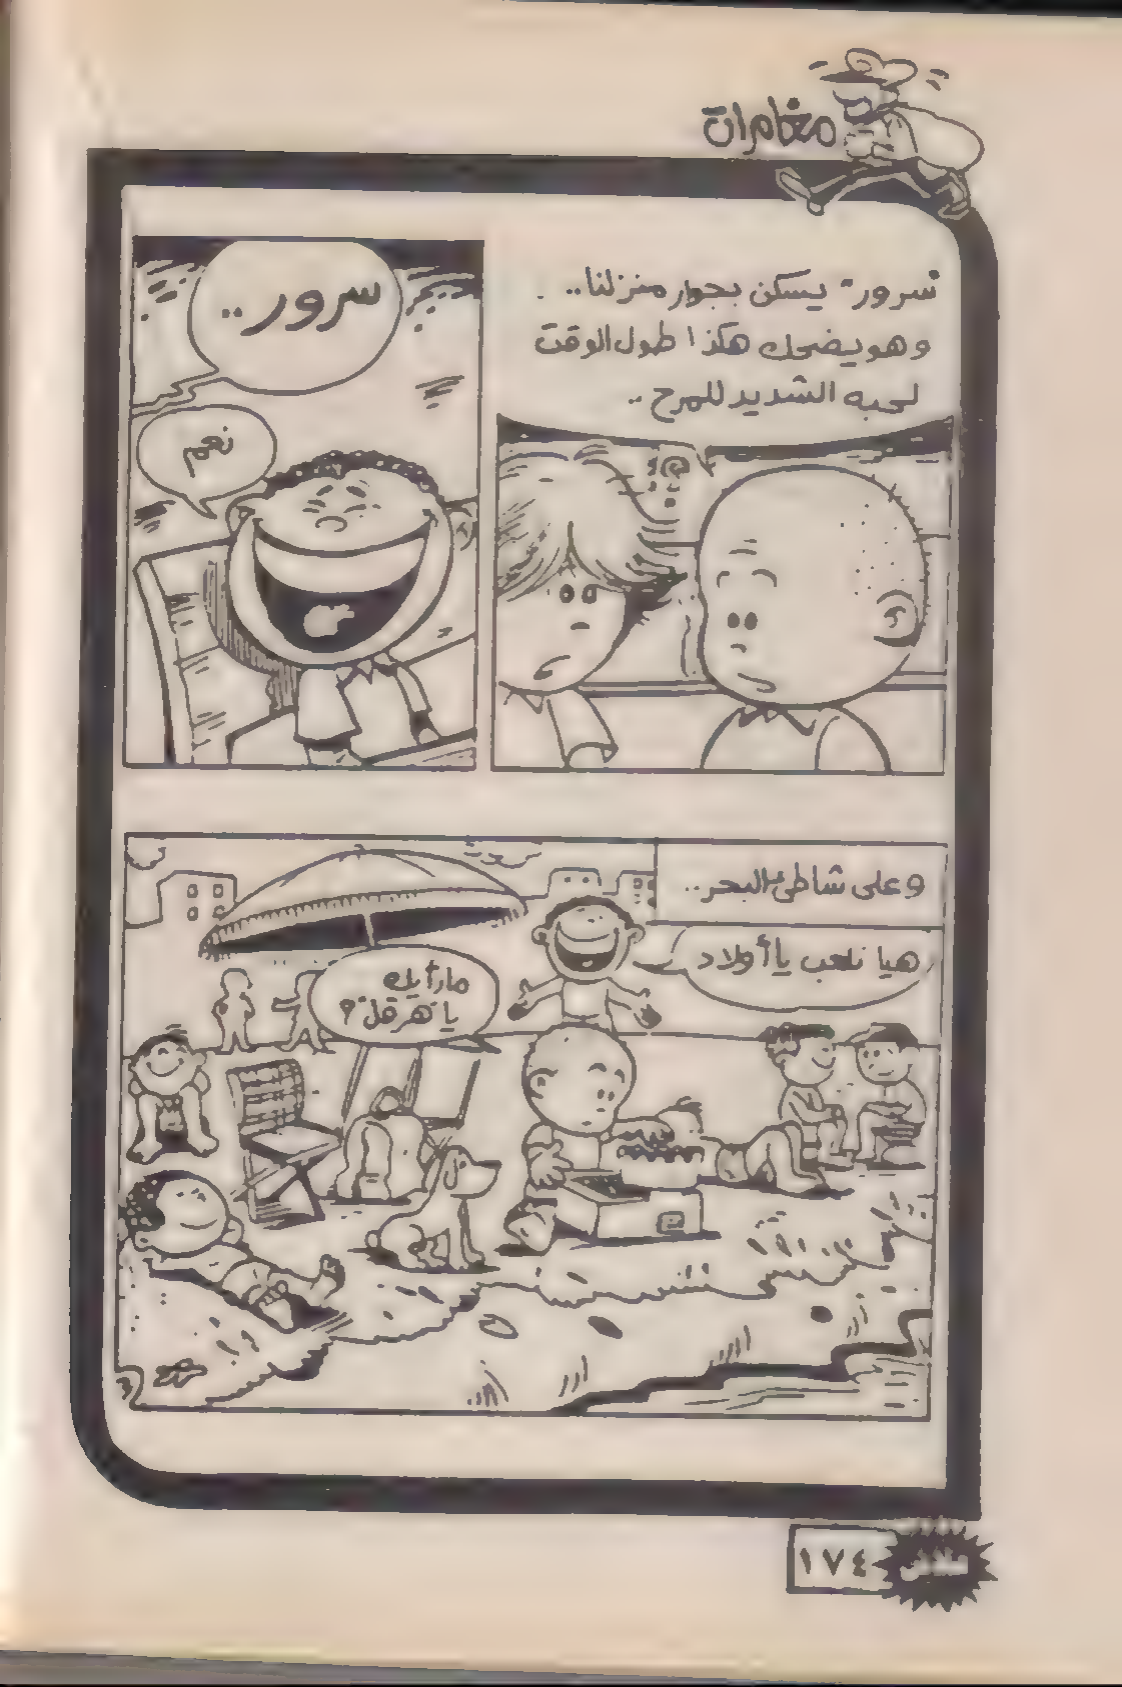 مغامرات
"سرور" يسكن بجوار منزلنا..
وهو يضحك هكذا طول الوقت
لحبه الشديد للمرح..
سرور..
نعم
وعلى شاطئ البحر..
هيا نلعب يا أولاد
ما رأيك
يا "هرقل"؟
١٧٤